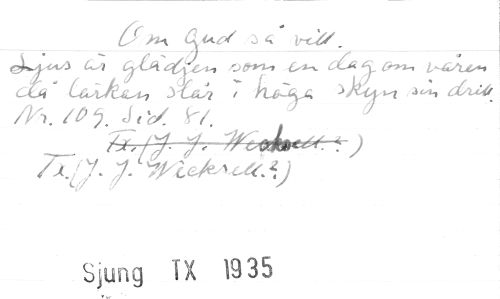 Om Gud så vill.
Ljus är glädjen som en dag om våren
då lärkan slår i höga skyn sin drill.
Nr. 109. Sid. 81.
Tx. (J. J. Wickrell.?)
Tx. (J. J. Wickrell.?)
Sjung TX 1935